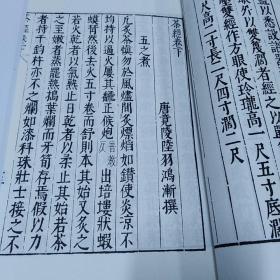 雙經作方眼使玲瓏高一尺五寸底濶
高二寸長二尺四寸闊二尺
茶經卷下
唐竟陵陸羽鴻漸撰
五之煮
凡炙茶慎勿於風燼間炙熛焰如鑽使炎涼不
均持以逼火屢其飜正候炮普教反出培塿狀蝦
蟆背然後去火五寸卷而舒則本其始又炙之
若火乾者以氣熟止日乾者以柔止其始若茶
之至嫩者蒸罷熱搗葉爛而牙筍存焉假以力
者持千鈞杵亦不之爛如漆科珠壯士接之不